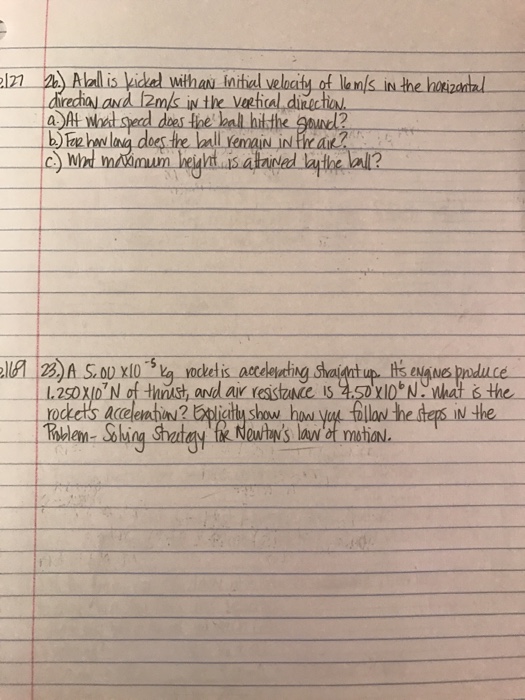 p.127 26.) A ball is kicked with an initial velocity of 16m/s in the horizontal
direction and 12m/s in the vertical direction.
a.) At what speed does the ball hit the ground?
b.) For how long does the ball remain in the air?
c.) What maximum height is attained by the ball?
p.169 23.) A 5.00 x10⁻⁵ kg rocket is accelerating straight up. It's engines produce
1.250x10⁷ N of thrust, and air resistance is 4.50x10⁶ N. What is the
rocket's acceleration? Explicitly show how you follow the steps in the
Problem-Solving Strategy for Newton's law of motion.